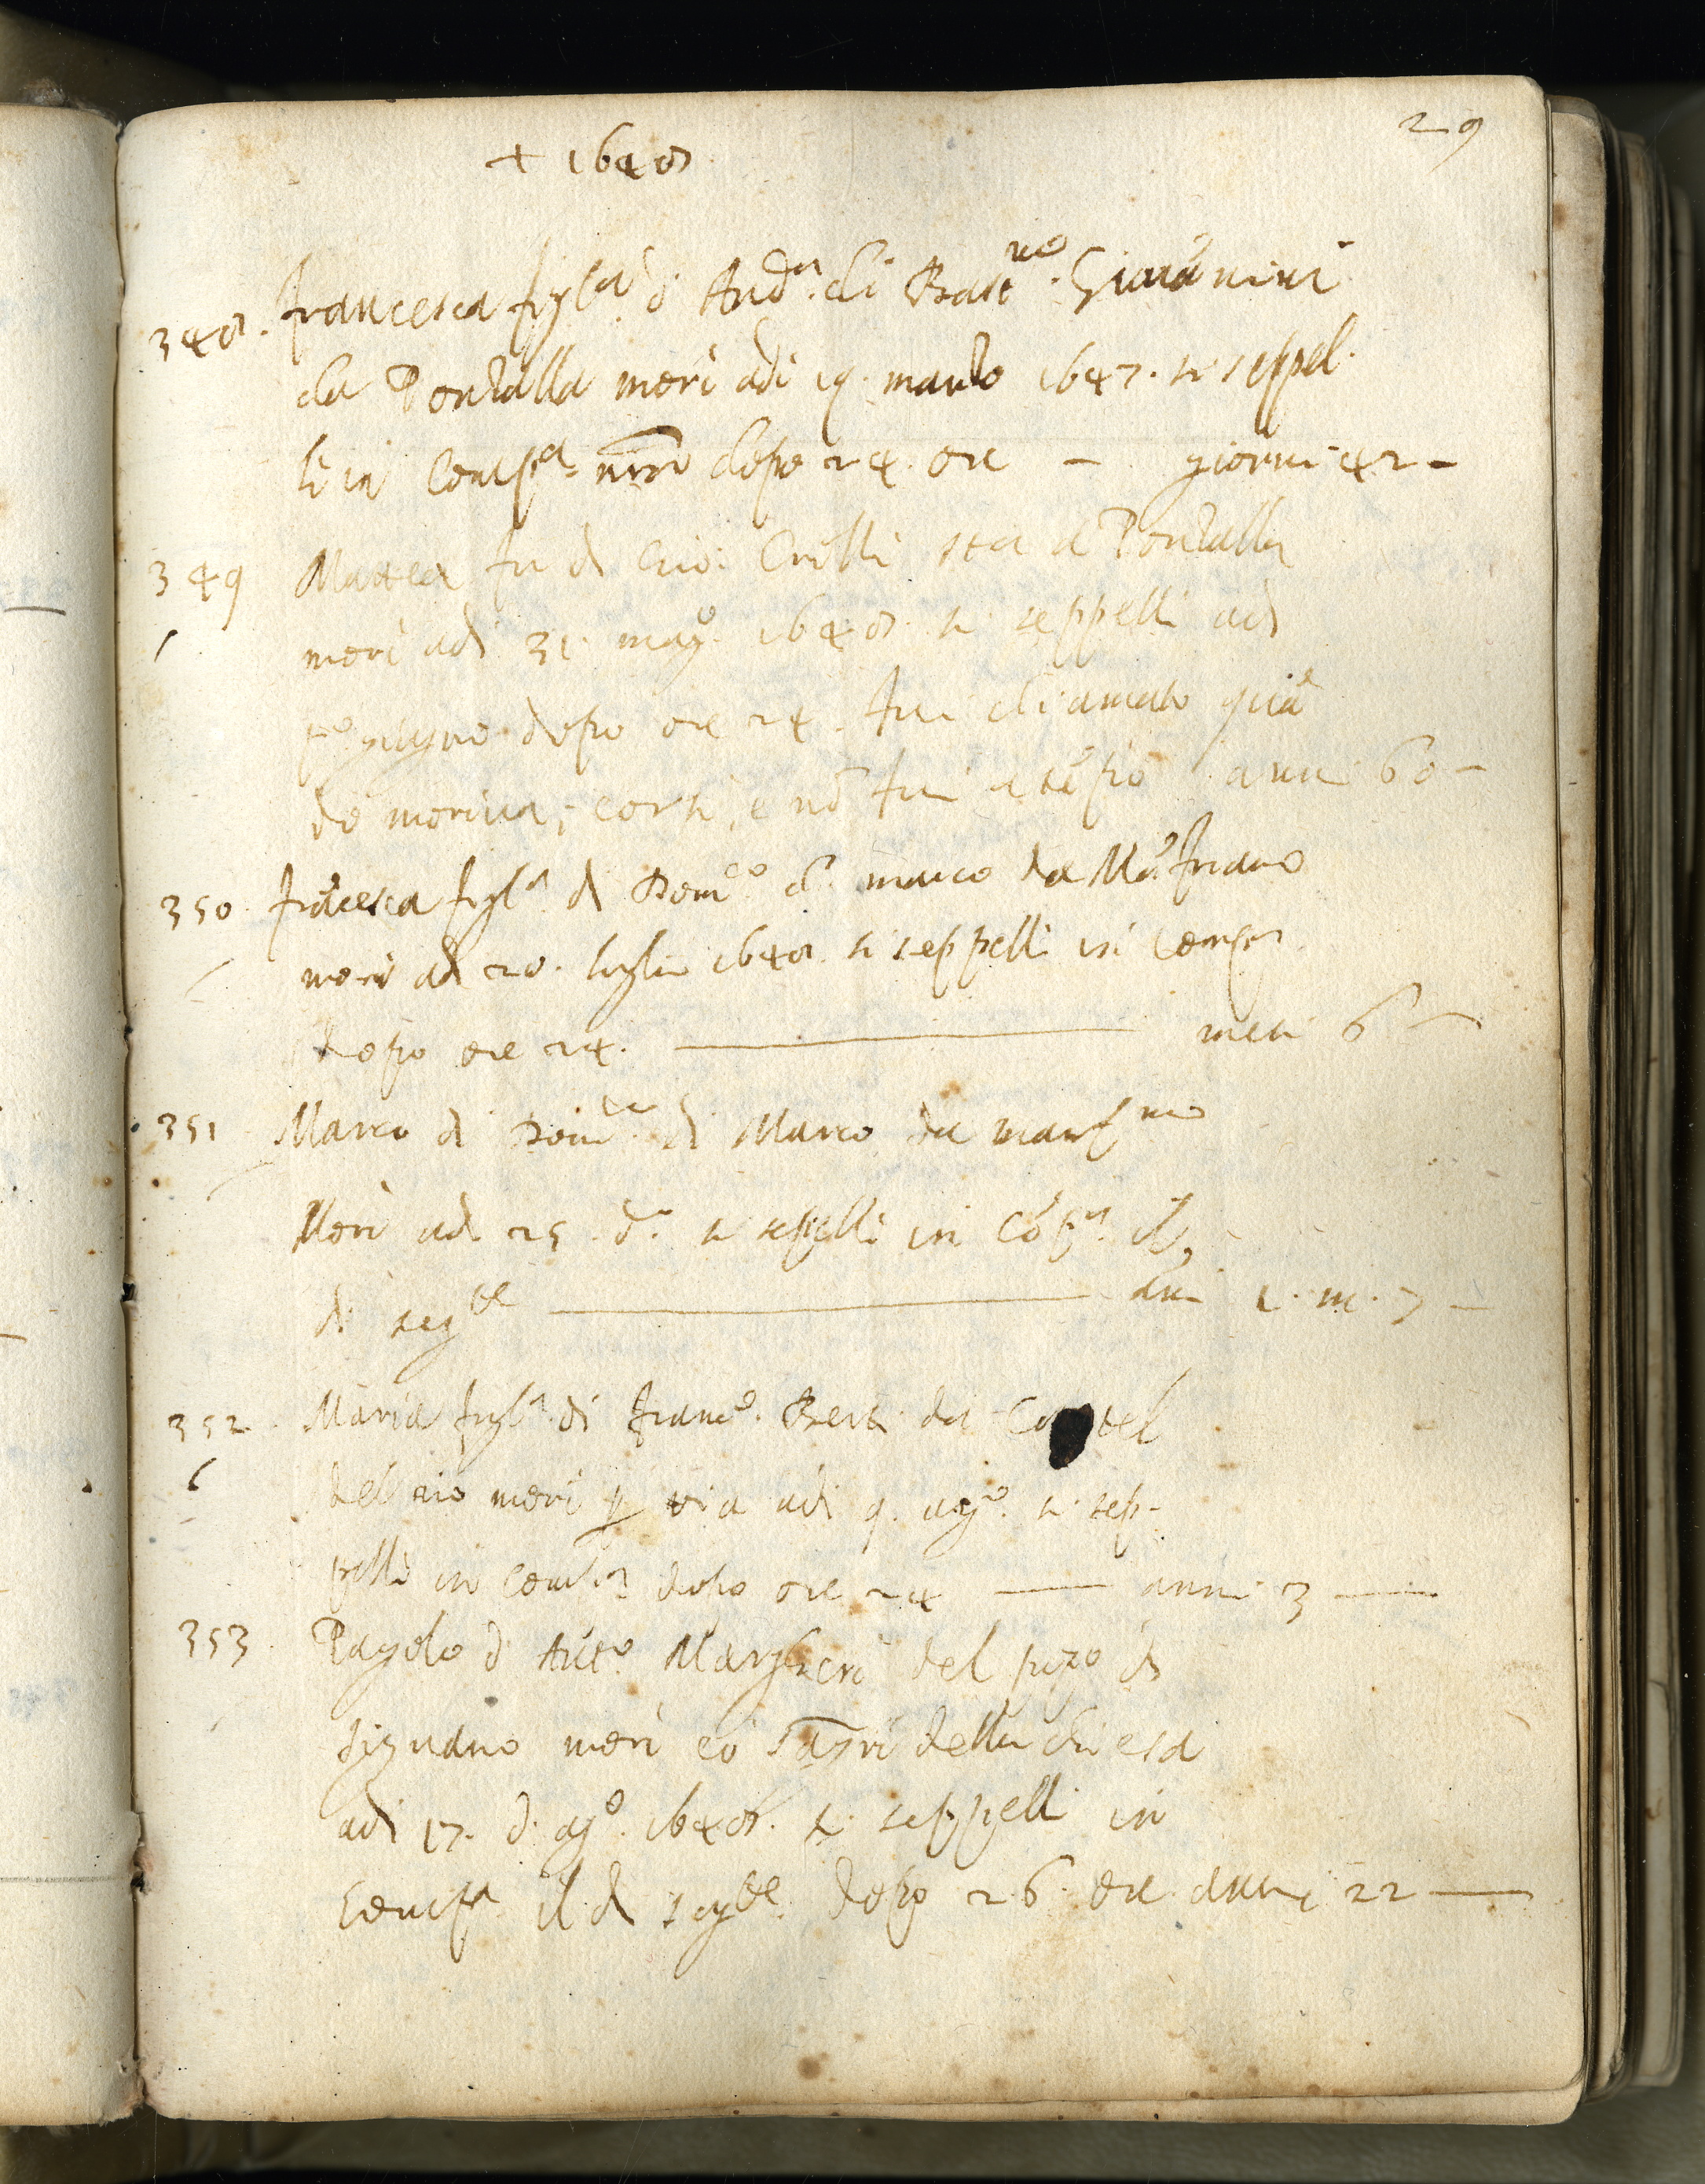 29
+ 1648
348. Francesca figl.a di And.a di Bast.no Giovãnini
da Pontalla morì adi 19. marzo 1647. si seppel-
lì in Comp.a nr̃a dopo 24. ore - giorni 42 -
349 Mattea fu di Gio: sta a Pontalla
morì adi 31. mag.o 1648. si seppellì adi
p.o giugno dopo ore 24. fui chiamato quã
do moriva, corsi, e nõ fui a tẽpo anni 60 -
350. Frãcesca figl.a di Dom.co di marco da
morì adi 20. luglio 1648. si seppellì in Comp.a
dopo ore 24. mesi 6
351 Marco di Dom.co di Marco da
Morì adi 25. d.o si seppellì in Cõp.a il
di seg.te anni 1. m. 7 -
352. Maria figl.a di Franc.o Berti da Castel
del rio morì p via adi 9. ag.o si sep-
pellì in Comp.a dopo ore 24 anni 3
353. Pagolo di Ant.o Margheri del pozo di
morì cõ sagri della chiesa
adi 17. d. ag.o 1648. si seppellì in
Comp.a il di seg.te dopo 26 ore anni 22